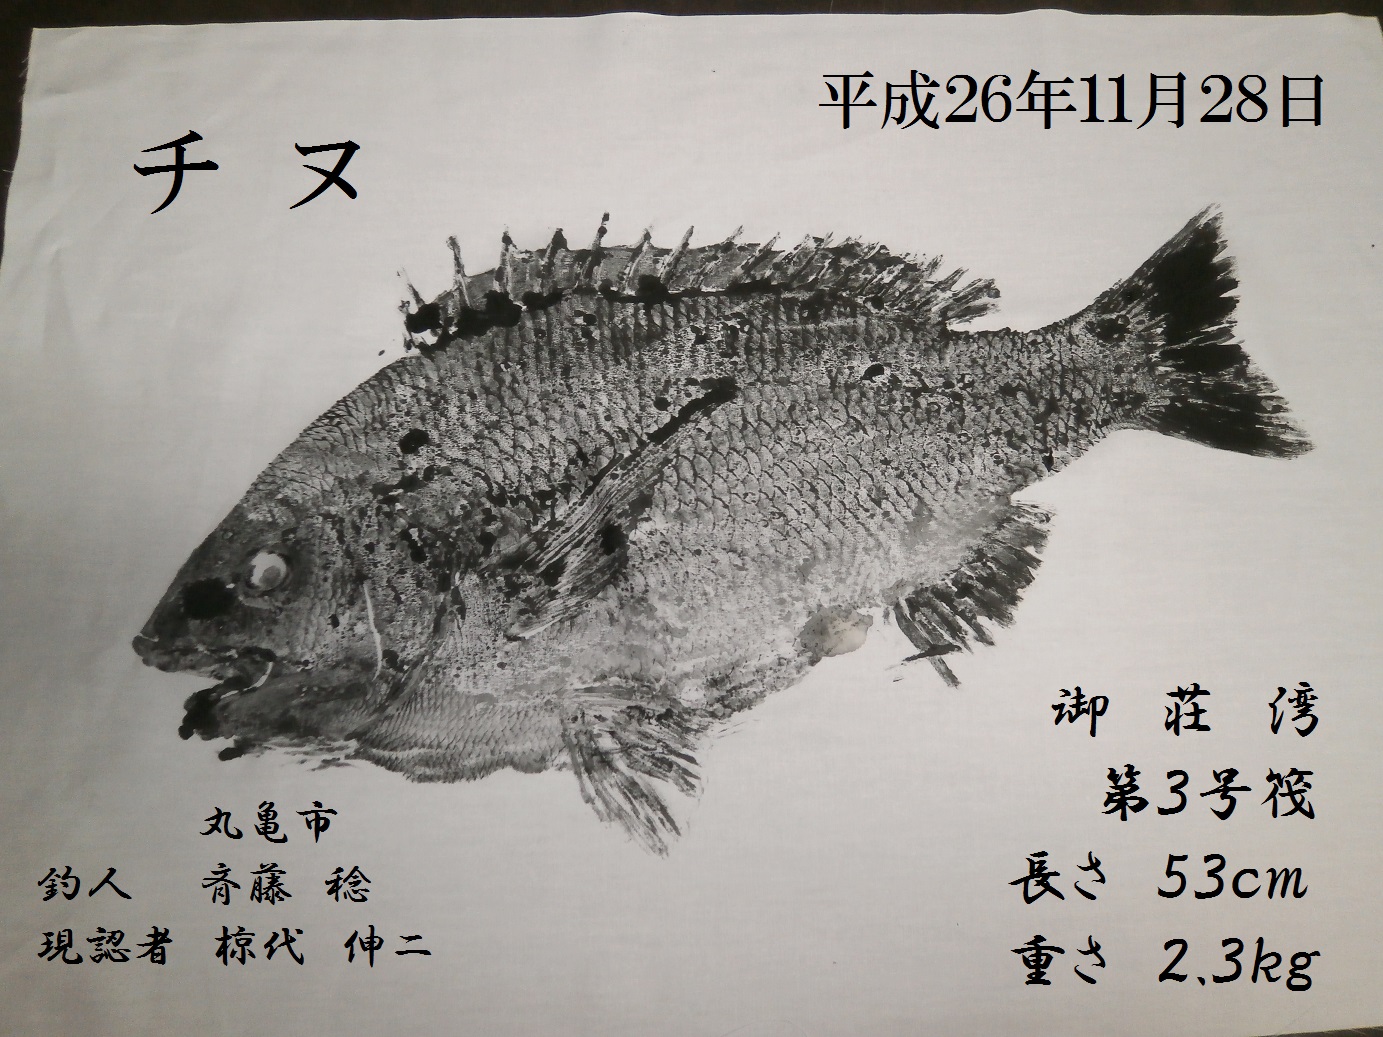 平成26年11月28日
チヌ
御荘湾
第3号筏
長さ 53cm
重さ 2.3kg
丸亀市
釣人 斉藤 稔
現認者 椋代 伸二